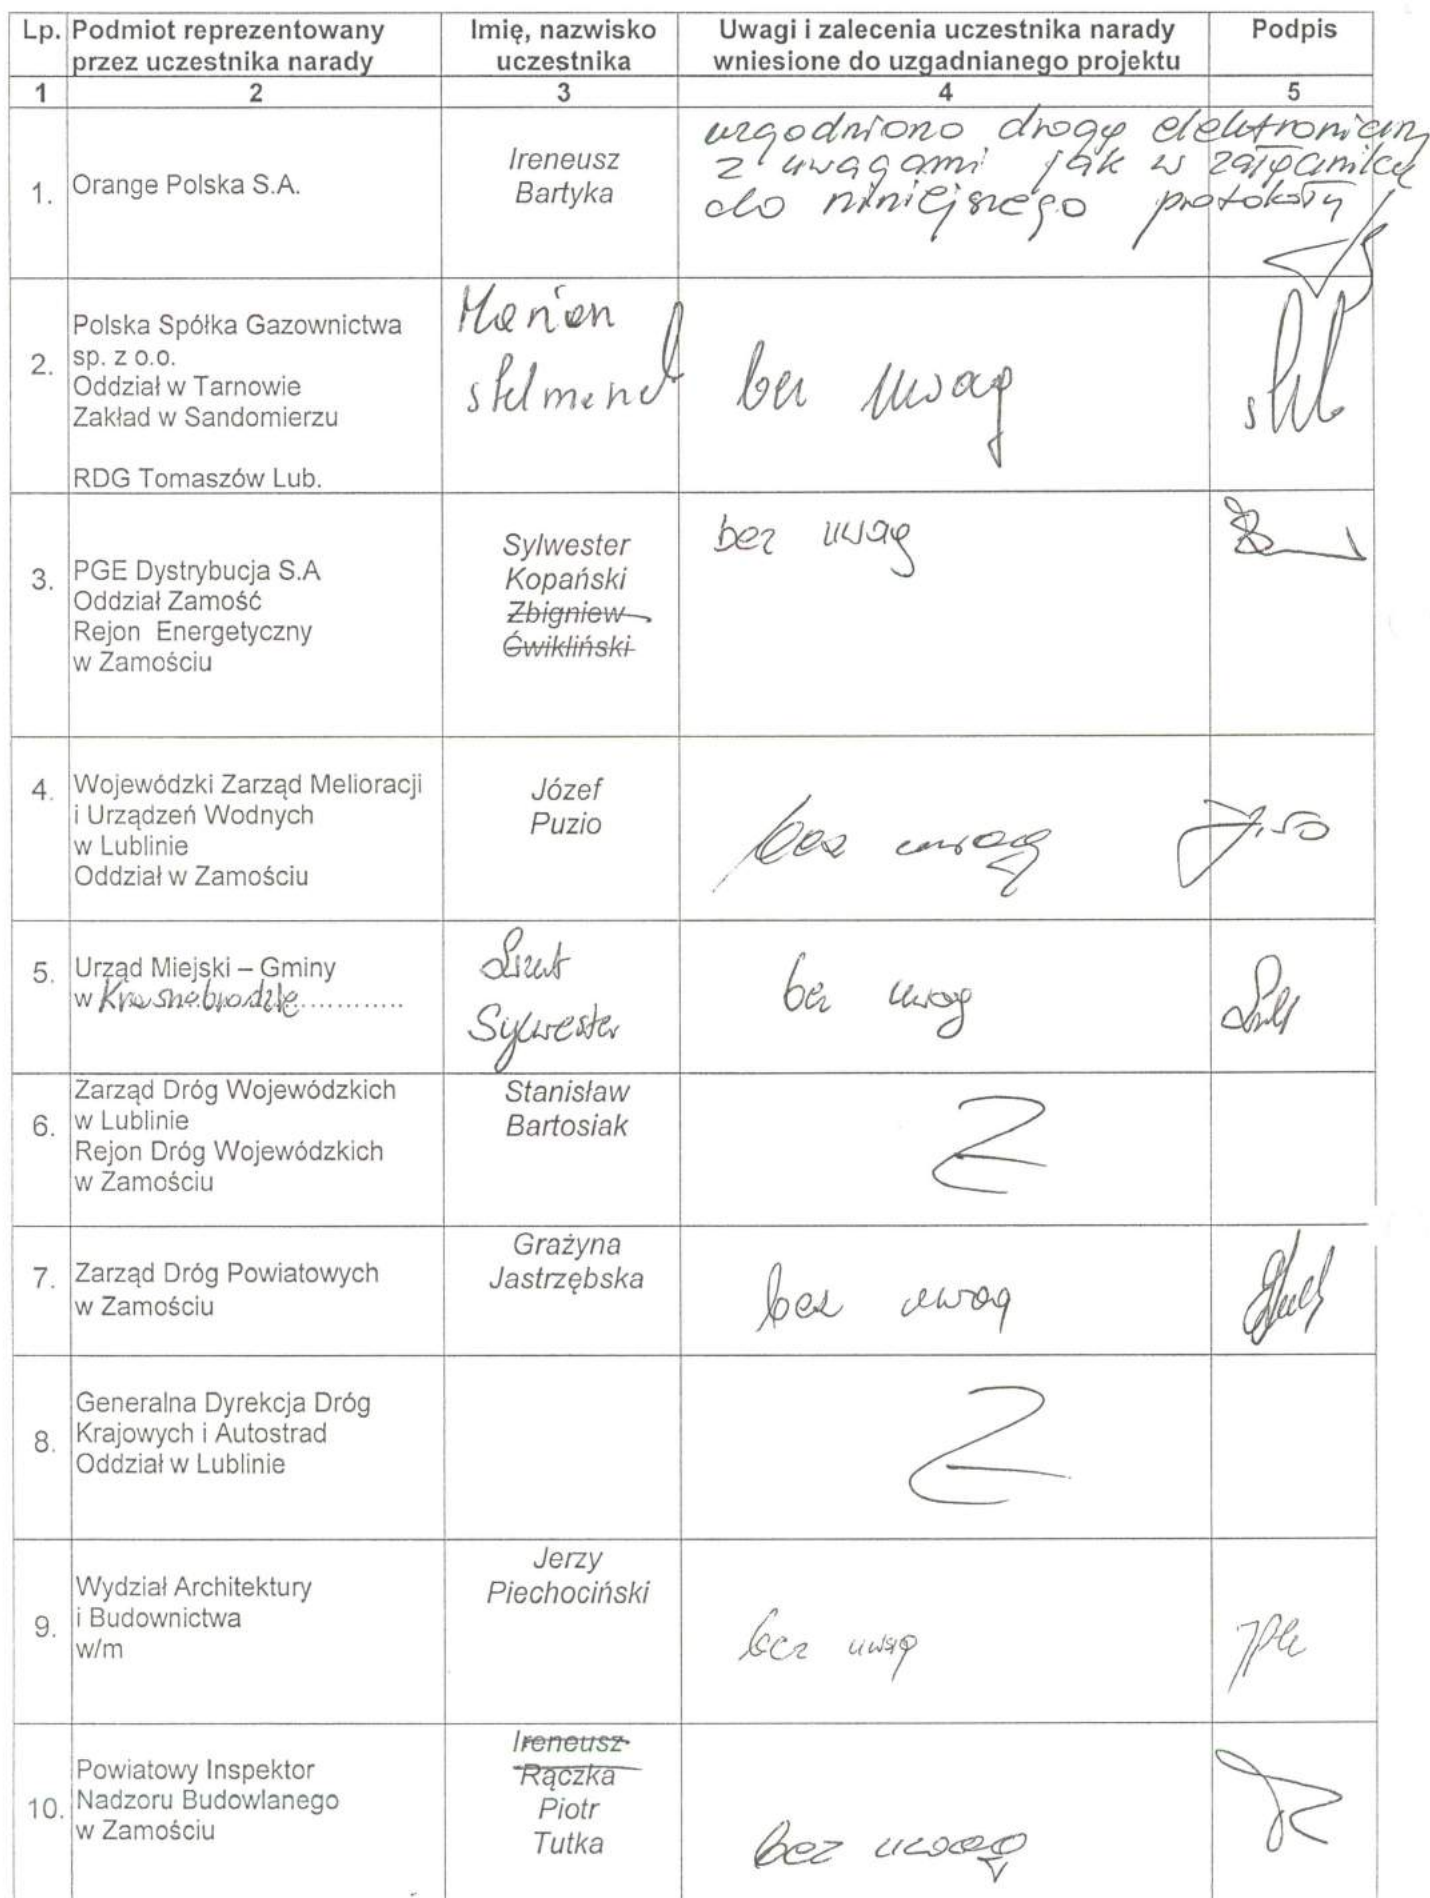 Lp. Podmiot reprezentowany Imię, nazwisko Uwagi i zalecenia uczestnika narady Podpis
przez uczestnika narady uczestnika wniesione do uzgadnianego projektu
1 2 3 4 5
1. Orange Polska S.A.
Ireneusz
Bartyka
uzgodniono drogą elektroniczną
z uwagami jak w załączniku
do niniejszego protokołu
2. Polska Spółka Gazownictwa
sp. z o.o.
Oddział w Tarnowie
Zakład w Sandomierzu
RDG Tomaszów Lub.
Marian
bez uwag
3. PGE Dystrybucja S.A
Oddział Zamość
Rejon Energetyczny
w Zamościu
Sylwester
Kopański
Zbigniew
Ćwikliński
bez uwag
4. Wojewódzki Zarząd Melioracji
i Urządzeń Wodnych
w Lublinie
Oddział w Zamościu
Józef
Puzio
bez uwag
5. Urząd Miejski – Gminy
w Krasnobrodzie............
Sylwester
bez uwag
6. Zarząd Dróg Wojewódzkich
w Lublinie
Rejon Dróg Wojewódzkich
w Zamościu
Stanisław
Bartosiak
7. Zarząd Dróg Powiatowych
w Zamościu
Grażyna
Jastrzębska
bez uwag
8. Generalna Dyrekcja Dróg
Krajowych i Autostrad
Oddział w Lublinie
9. Wydział Architektury
i Budownictwa
w/m
Jerzy
Piechociński
bez uwag
10. Powiatowy Inspektor
Nadzoru Budowlanego
w Zamościu
Ireneusz
Rączka
Piotr
Tutka
bez uwag